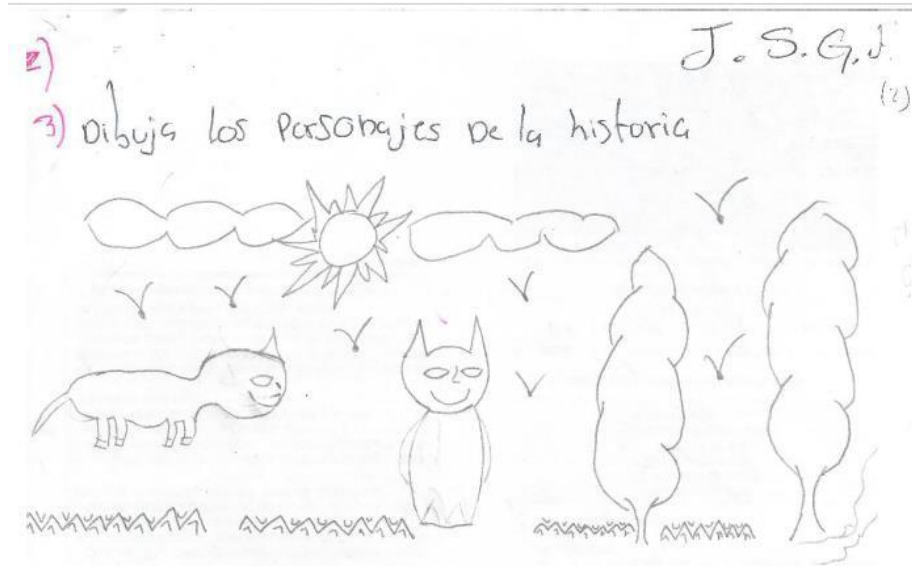 J. S. G. J.
2)
(2)
3) Dibuja los Personajes De la historia